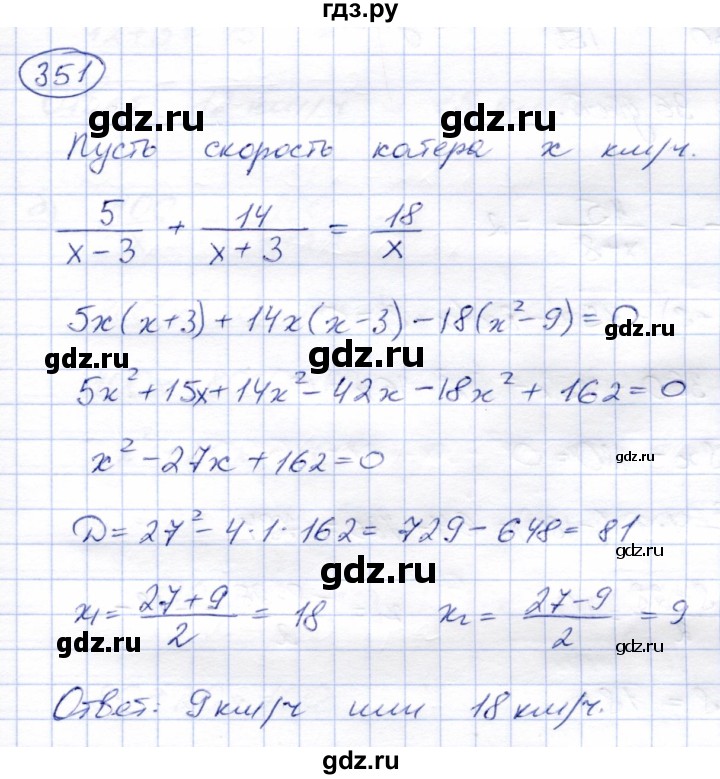 гдз.ру
351
gdz.ru gdz.ru
Пусть скорость катера x км/ч.
5/(x-3) + 14/(x+3) = 18/x
gdz.ru
5x(x+3)+14x(x-3)-18(x²-9)=0
gdz.ru gdz.ru
5x²+15x+14x²-42x-18x²+162=0
x²-27x+162=0
gdz.ru
D=27²-4·1·162=729-648=81
gdz.ru
x₁=(27+9)/2=18 x₂=(27-9)/2=9
gdz.ru gdz.ru
Ответ: 9км/ч или 18км/ч.
gdz.ru